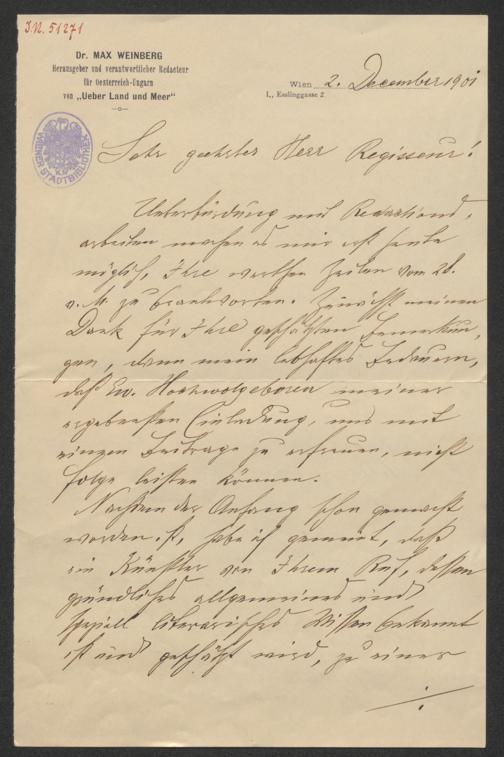 J.N. 51271
Dr. MAX WEINBERG
Herausgeber und verantwortlicher Redacteur
für Oesterreich-Ungarn
von „Ueber Land und Meer"
Wien 2. December 1901
I., Esslinggasse 2
WIENER STADTBIBLIOTHEK
Sehr geehrter Herr Regisseur!
Ueberbürdung mit Redactions,
arbeiten machen es mir erst heute
möglich, Ihre werthen Zeilen vom 28.
v. M. zu beantworten. Zunächst meinen
Dank für Ihre geschätzten Bemerkun,
gen, dann mein lebhaftes Bedauern,
daß Ew. Hochwolgeboren meiner
ergebensten Einladung, uns mit
einem Beitrage zu erfreuen, nicht
folge leisten können.
Nachdem der Anfang schon gemacht
worden ist, habe ich gemeint, daß
ein Künstler von Ihrem Ruf, dessen
gründliches allgemeines und
speziell literarisches Wissen bekannt
ist und geschätzt wird, zu einer
./.